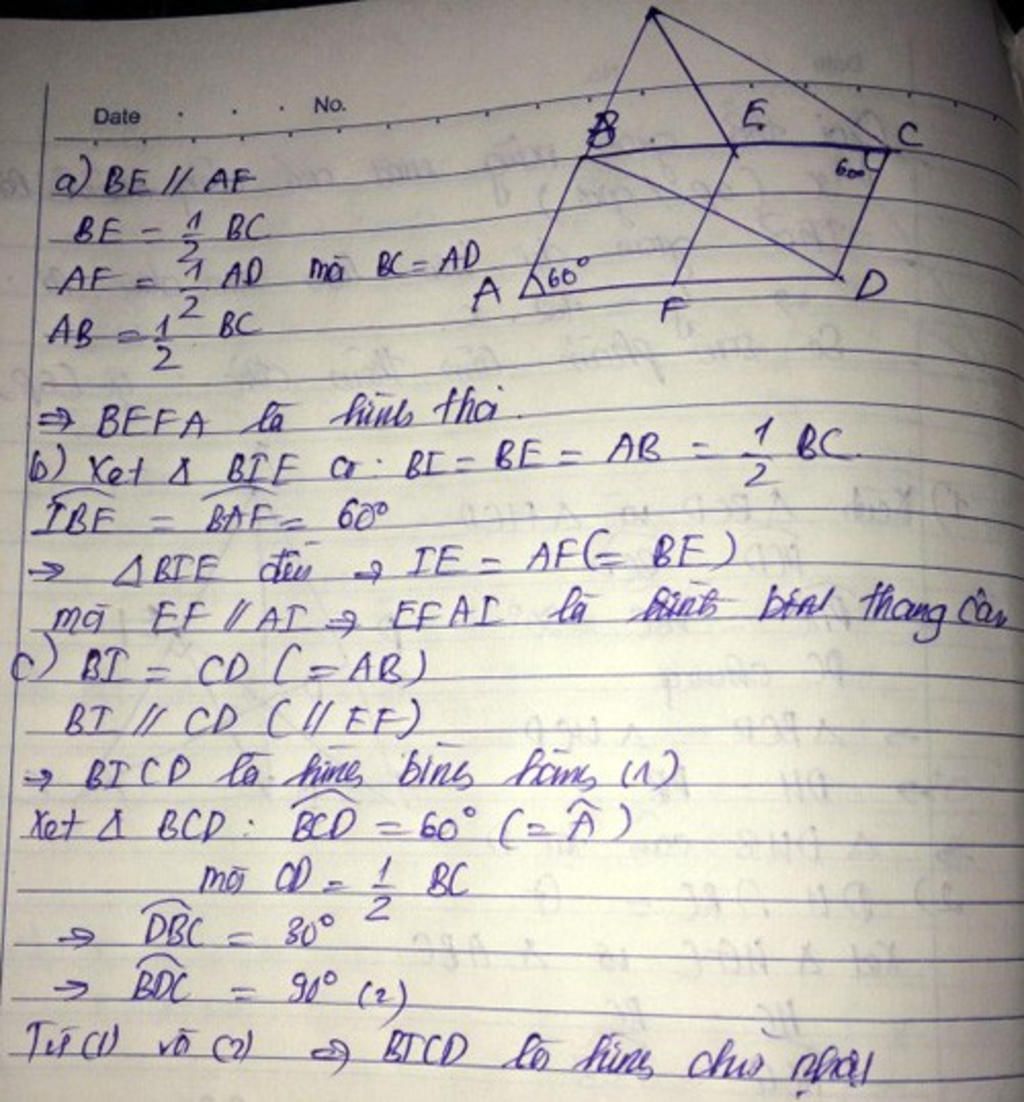 Date . . . No.
B E C
600
A 60° F D
a) BE // AF
BE = 1/2 BC
AF = 1/2 AD mà BC = AD
AB = 1/2 BC
⇒ BEFA là hình thoi.
b) Xét Δ BIE có: BI = BE = AB = 1/2 BC.
IBE = BAF = 60°
→ Δ BIE đều → IE = AF (= BE)
mà EF // AI ⇒ EFAI là hình thang cân
c) BI = CD (= AB)
BI // CD (// EF)
→ BICD là hình bình hành (1)
Xét Δ BCD: BCD = 60° (= Â)
mà CD = 1/2 BC
→ DBC = 30°
→ BDC = 90° (2)
Từ (1) và (2) ⇒ BICD là hình chữ nhật